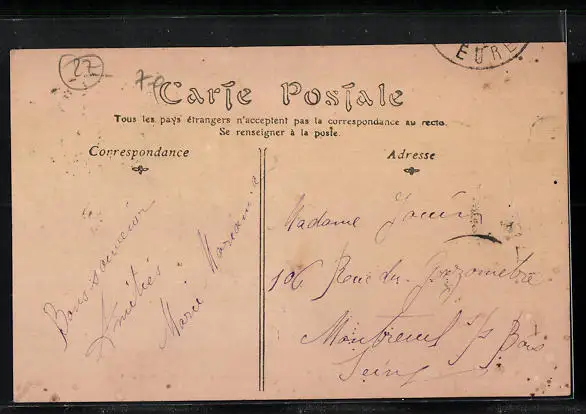 27
EURE
Carte Postale
Tous les pays étrangers n'acceptent pas la correspondance au recto.
Se renseigner à la poste.
Correspondance
Bons souvenir
Amitiés
Marie
Adresse
Madame
106 Rue du Gazomètre
Montreuil s/s Bois
Seine